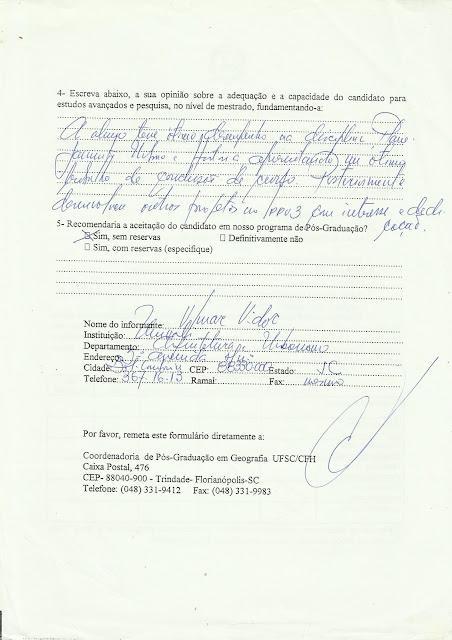 4- Escreva abaixo, a sua opinião sobre a adequação e a capacidade do candidato para
estudos avançados e pesquisa, no nível de mestrado, fundamentando-a:
A aluna teve ótimo desempenho na disciplina Plane-
jamento Urbano e
trabalho de conclusão de curso. Posteriormente
desenvolveu outros projetos no com interesse e dedi-
cação.
5- Recomendaria a aceitação do candidato em nosso programa de Pós-Graduação?
☒ Sim, sem reservas ☐ Definitivamente não
☐ Sim, com reservas (especifique)
Nome do informante: Vidor
Instituição:
Departamento: Arquitetura e Urbanismo
Endereço:
Cidade: CEP: Estado: SC
Telefone: 367.16.13 Ramal: Fax: mesmo
Por favor, remeta este formulário diretamente a:
Coordenadoria de Pós-Graduação em Geografia UFSC/CFH
Caixa Postal, 476
CEP- 88040-900 - Trindade- Florianópolis-SC
Telefone: (048) 331-9412 Fax: (048) 331-9983